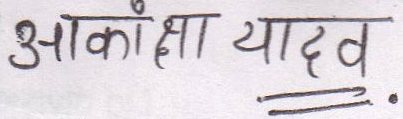 आकांक्षा यादव